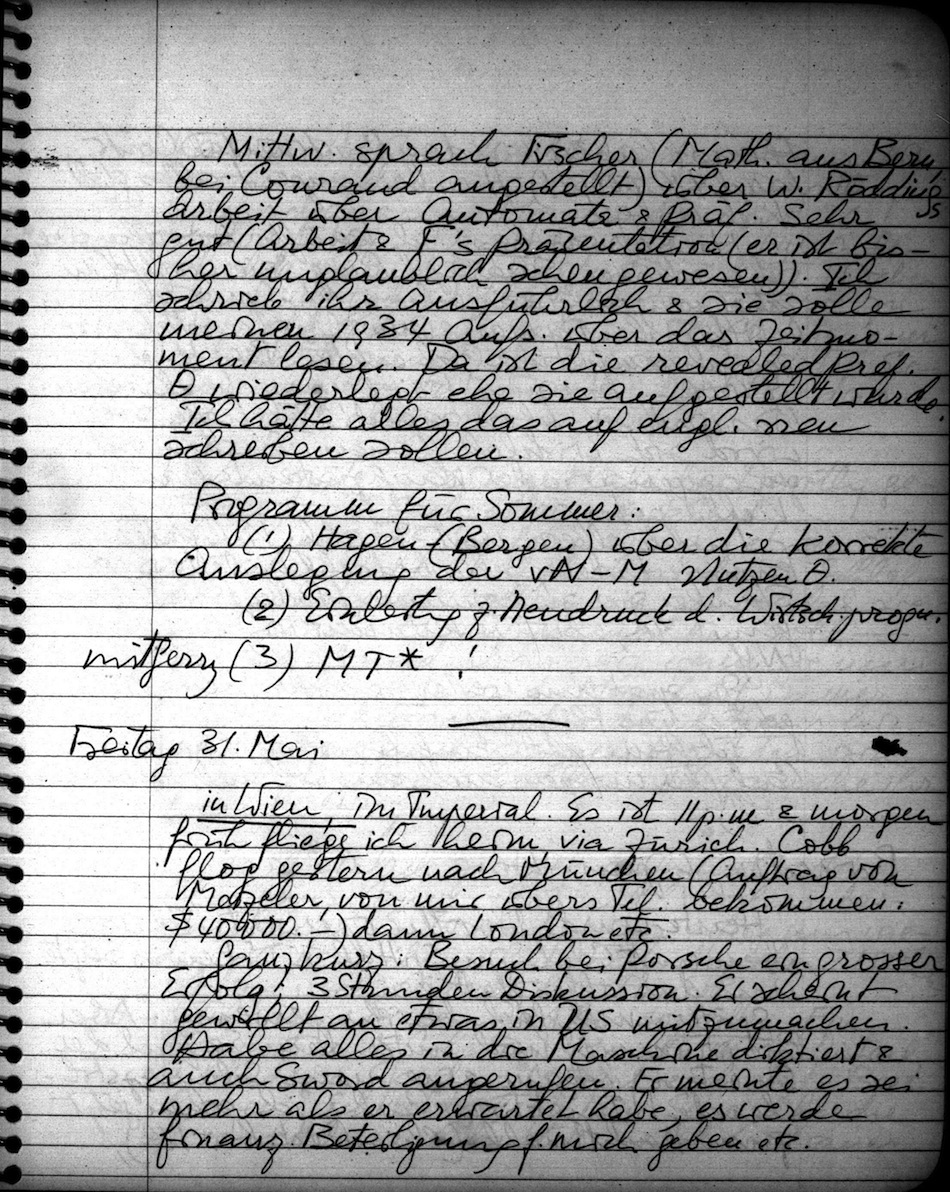 Mittw. sprach Fischer (Math. aus Bern,
bei Courand angestellt) über W. Rödding's
Arbeit über Automata & Präf. Sehr
gut (Arbeit & F's Präsentation (er ist bis-
her unglaublich schen gewesen)). Ich
schrieb ihr ausführlich & sie solle
meinen 1934 Aufs. über das Zeitmo-
ment lesen. Da ist die revealed Pref.
θ wiederlegt ehe sie aufgestellt wurde
Ich hätte alles das auf engl. neu
schreiben sollen.
Programm für Sommer:
(1) Hagen (Bergen) über die korrekte
Auslegung der vN-M Nutzen θ.
(2) Einleitg z. Neudruck d. Wirtsch.progn.
(3) MT* !
Freitag 31. Mai
in Wien, im Imperial. Es ist 11 p.m & morgen
früh fliege ich heim via Zürich. Cobb
flog gestern nach München (Auftrag von
Matzeler, von mir übers Tel. bekommen:
$40000.–) dann London etc.
Ganz kurz: Besuch bei Porsche ein grosser
Erfolg; 3 Stunden Diskussion. Er scheint
gewillt an etwas in US mitzumachen.
Habe alles in die Maschine diktiert &
auch Sword angerufen. Er meinte es sei
mehr als er erwartet habe, es werde
finanz. Beteiligung f. mich geben etc.